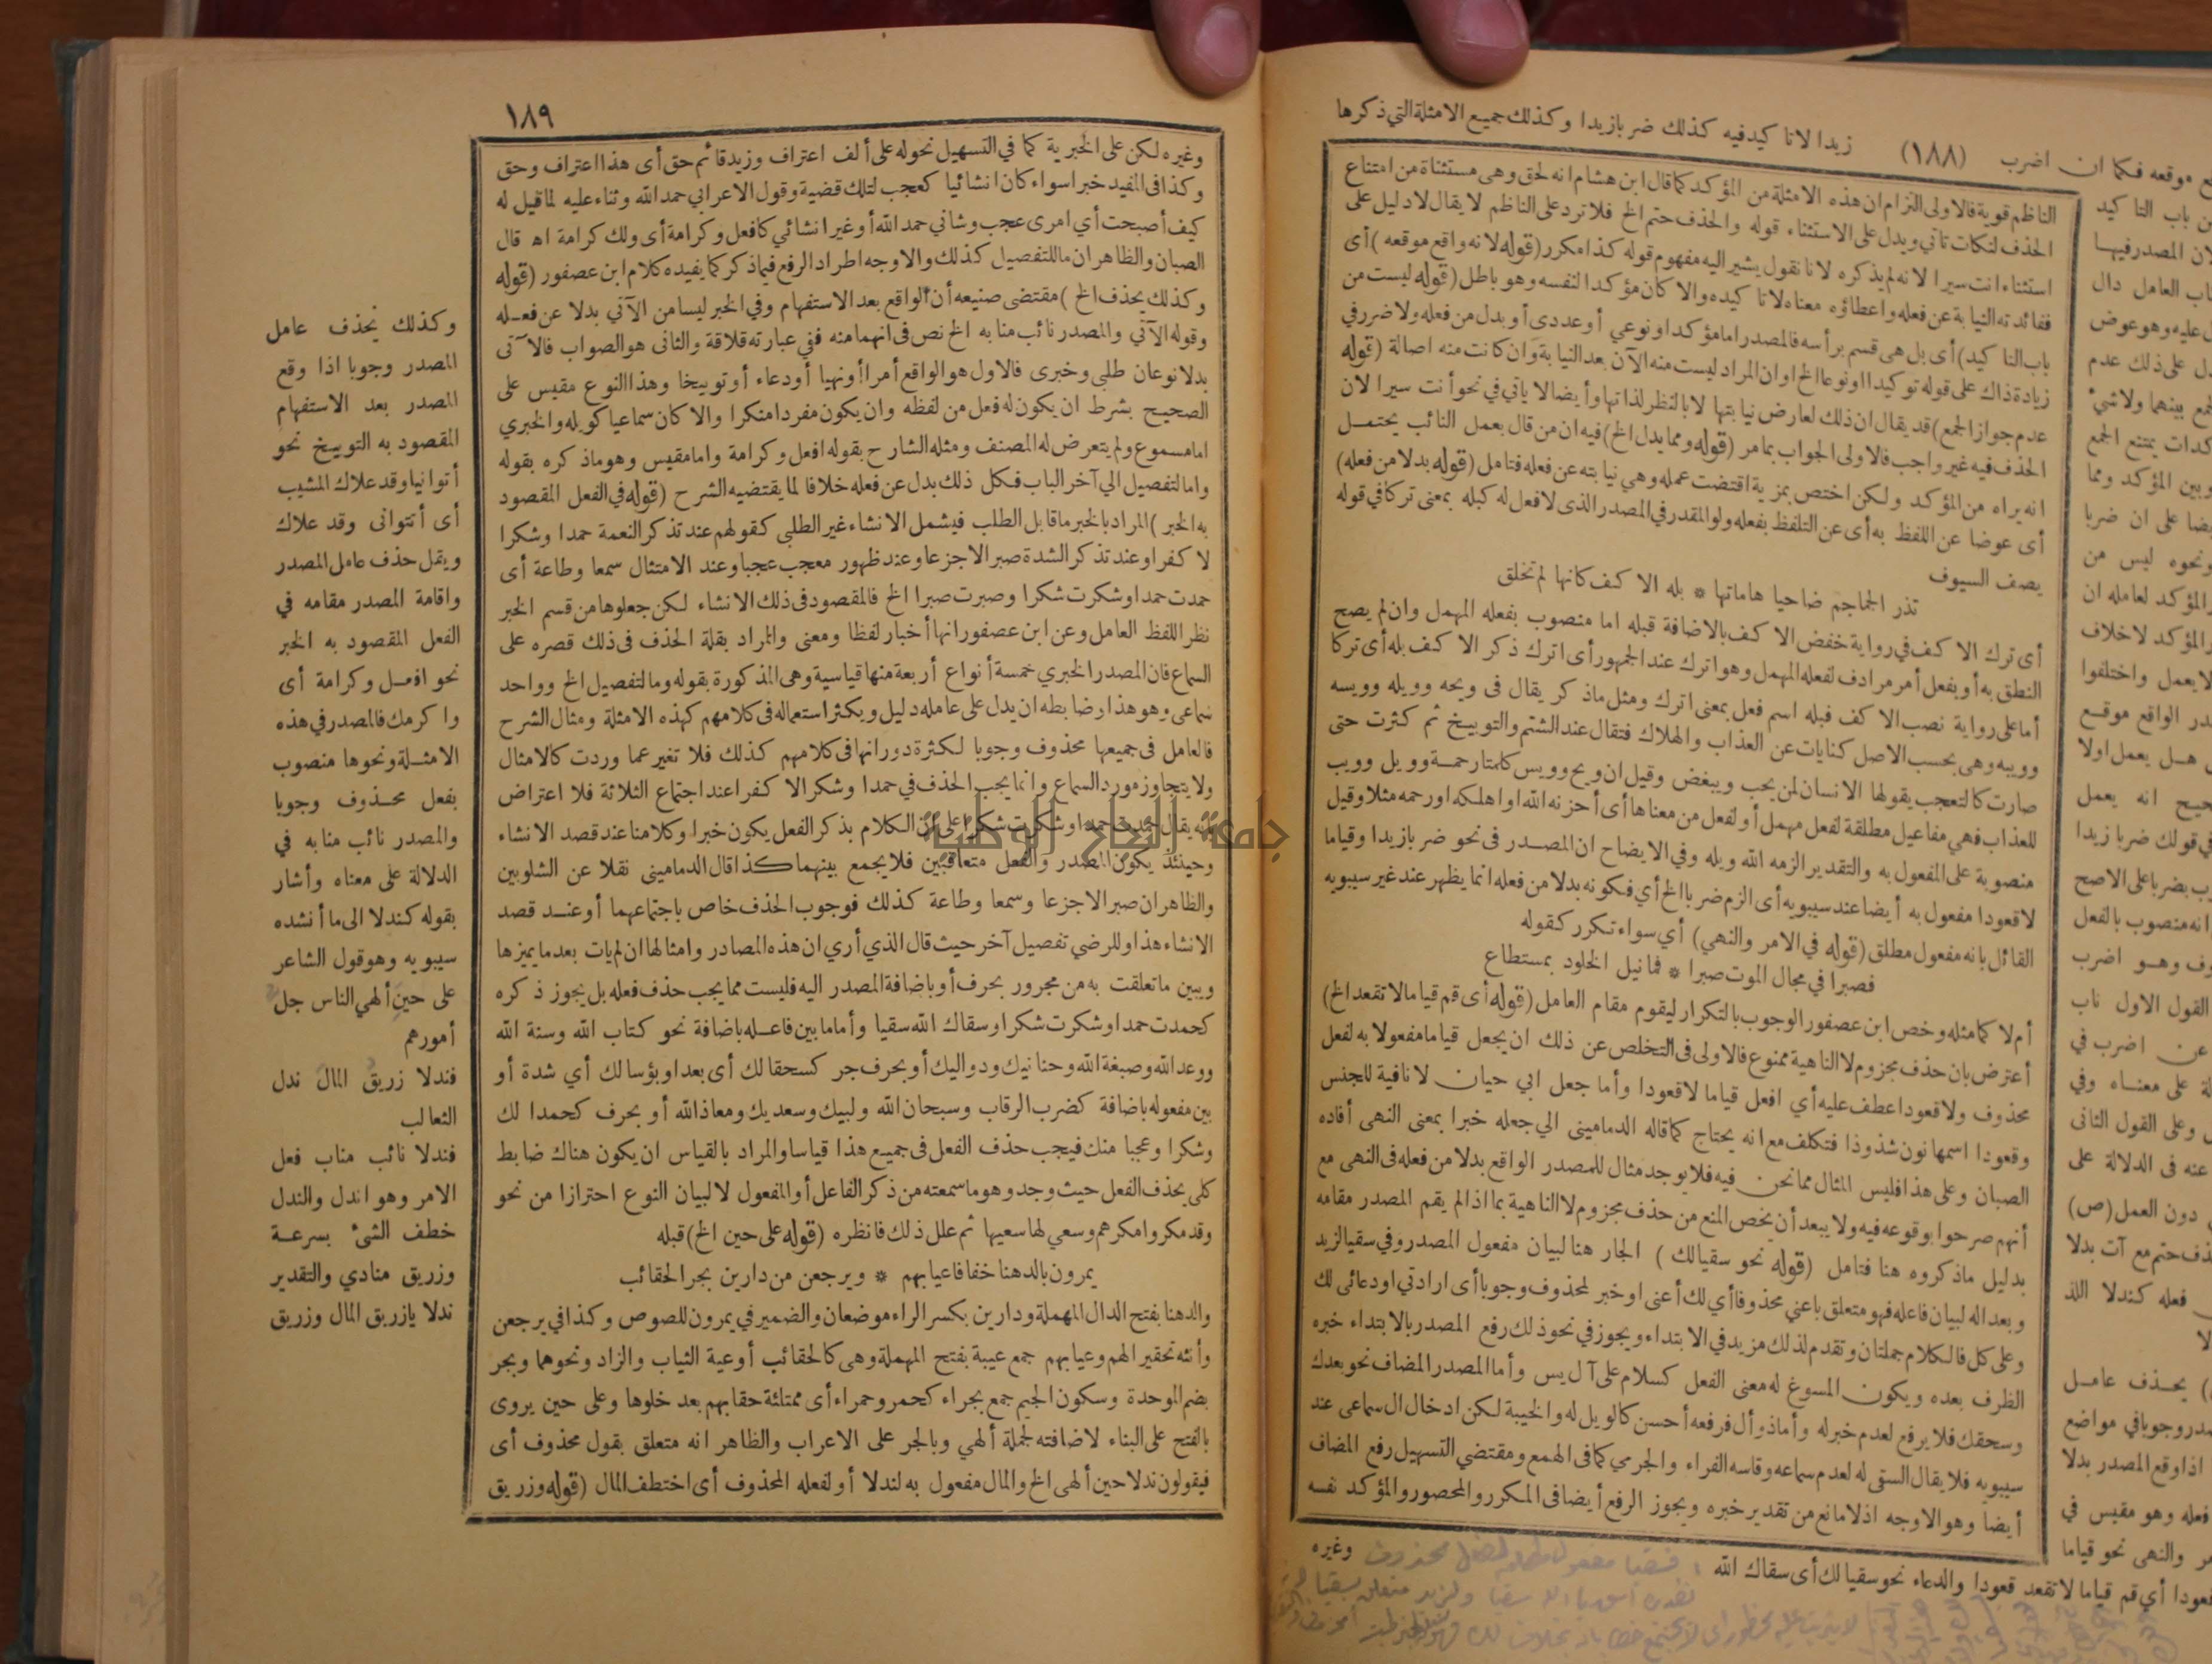 زيدا لانا كيد فيه كذلك ضربا زيدا وكذلك جميع الامثلة التي ذكرها
(١٨٨)
موقعه فكما ان اضرب
الناظم قوية فالاولى التزام ان هذه الامثلة من المؤكد كما قال ابن هشام انه لحق وهي مستثناة من امتناع
الحذف لنكات تاتي ويدل على الاستثناء قوله والحذف حتم الخ فلا ترد على الناظم لا يقال لا دليل على
استثناء انت سيرا لانه لم يذكره لانا نقول يشير اليه مفهوم قوله كذا مكرر (قوله لانه واقع موقعه) أى
ففائدته النيابة عن فعله واعطاؤه معناه لا تا كيده والا كان مؤكدا لنفسه وهو باطل (قوله ليست من
باب التا كيد) أى بل هى قسم برأسه فالمصدر اما مؤكد او نوعي أو عددى أو بدل من فعله ولا ضرر في
زيادة ذاك على قوله توكيدا او نوعا الخ او ان المراد ليست منه الآن بعد النيابة وان كانت منه اصالة (قوله
عدم جواز الجمع) قد يقال ان ذلك لعارض نيابتها لا بالنظر لذاتها وأيضا لا ياتي في نحو أنت سيرا لان
الحذف فيه غير واجب فالاولى الجواب بما مر (قوله ومما يدل الخ) فيه ان من قال بعمل النائب يحتمـــل
انه يراه من المؤكد ولكن اختص بمزية اقتضت عمله وهي نيابته عن فعله فتامل (قوله بدلا من فعله)
أى عوضا عن اللفظ به أى عن التلفظ بفعله ولو المقدر في المصدر الذى لا فعل له كبله بمعنى تركا في قوله
يصف السيوف
تذر الجماجم ضاحيا هاماتها * بله الا كف كانها لم تخلق
أى ترك الا كف في رواية خفض الا كف بالاضافة قبله اما منصوب بفعله المهمل وان لم يصح
النطق به أو بفعل أمر مرادف لفعله المهمل وهو اترك عند الجمهور أى اترك ذكر الا كف بله أى تركا
أما على رواية نصب الا كف فبله اسم فعل بمعنى اترك ومثل ماذكر يقال فى ويحه وويله وويسه
وويبه وهى بحسب الاصل كنايات عن العذاب والهلاك فتقال عند الشتم والتوبيخ ثم كثرت حتى
صارت كالتعجب يقولها الانسان لمن يحب ويبغض وقيل ان ويح وويس كلمتا رحمـــة وويل وويب
للعذاب فهي مفاعيل مطلقة لفعل مهمل أو لفعل من معناها أى أحزنه الله او اهلكه او رحمه مثلا وقيل
منصوبة على المفعول به والتقدير الزمه الله ويله وفي الايضاح ان المصـــدر فى نحو ضربا زيدا وقياما
لا قعودا مفعول به أيضا عند سيبويه أى الزم ضربا الخ أي فكونه بدلا من فعله انما يظهر عند غير سيبويه
القائل بانه مفعول مطلق (قوله في الامر والنهي) أي سواء تكرر كقوله
فصبرا في مجال الموت صبرا * فما نيل الخلود بمستطاع
أم لا كما مثله وخص ابن عصفور الوجوب بالتكرار ليقوم مقام العامل (قوله أى قم قياما لا تقعد الخ)
أعترض بان حذف مجزوم لا الناهية ممنوع فالاولى فى التخلص عن ذلك ان يجعل قياما مفعولا به لفعل
محذوف ولا قعودا عطف عليه أي افعل قياما لا قعودا وأما جعل ابي حيان لا نافية للجنس
وقعودا اسمها نون شذوذا فتكلف مع انه يحتاج كما قاله الدماميني الي جعله خبرا بمعنى النهى أفاده
الصبان وعلى هذا فليس المثال مما نحن فيه فلا يوجد مثال للمصدر الواقع بدلا من فعله فى النهى مع
أنهم صرحوا بوقوعه فيه ولا يبعد أن يخص المنع من حذف مجزوم لا الناهية بما اذا لم يقم المصدر مقامه
بدليل ماذكروه هنا فتامل (قوله نحو سقيا لك) الجار هنا لبيان مفعول المصدر وفي سقيا لزيد
وبعدا له لبيان فاعله فهو متعلق باعني محذوفا أي لك أعنى او خبر لمحذوف وجوبا أى ارادتي او دعائي لك
وعلى كل فالكلام جملتان وتقدم لذلك مزيد في الابتداء ويجوز في نحو ذلك رفع المصدر بالابتداء خبره
الظرف بعده ويكون المسوغ له معنى الفعل كسلام على آل يس وأما المصدر المضاف نحو بعدك
وسحقك فلا يرفع لعدم خبر له وأما ذو أل فرفعه أحسن كالويل له والخيبة لكن ادخال ال سماعى عند
سيبويه فلا يقال السقى له لعدم سماعه وقاسه الفراء والجرمي كما فى الهمع ومقتضي التسهيل رفع المضاف
أيضا وهو الاوجه اذ لا مانع من تقدير خبره ويجوز الرفع أيضا فى المكرر والمحصور والمؤكد نفسه
وغيره
من باب التا كيد
لان المصدر فيهـا
ناب العامل دال
عليه وهو عوض
على ذلك عدم
بينهما ولا شئ
يمتنع الجمع
وبين المؤكد ومما
على ان ضربا
ونحوه ليس من
المؤكد لعامله ان
المؤكد لا خلاف
لا يعمل واختلفوا
الواقع موقـع
هـل يعمل اولا
انه يعمل
في قولك ضربا زيدا
بضربا على الاصح
انه منصوب بالفعل
وهـو اضرب
القول الاول ناب
عن اضرب في
على معنـاه وفي
وعلى القول الثانى
عنه فى الدلالة على
دون العمل (ص)
حتم مع آت بدلا
فعله كندلا اللذ
يحـذف عامـل
وجوبا في مواضع
اذا وقع المصدر بدلا
فعله وهو مقيس في
والنهى نحو قياما
قعودا أي قم قياما لا تقعد قعودا والدعاء نحو سقيا لك أى سقاك الله
١٨٩
وغيره لكن على الخبرية كما في التسهيل نحو له على ألف اعتراف وزيد قائم حق أى هذا اعتراف وحق
وكذا فى المفيد خبرا سواء كان انشائيا كعجب لتلك قضية وقول الاعرابي حمد الله وثناء عليه لما قيل له
كيف أصبحت أي امرى عجب وشاني حمد الله أو غير انشائي كافعل وكرامة أى ولك كرامة اه قال
الصبان والظاهر ان ما للتفصيل كذلك والاوجه اطراد الرفع فيما ذكر كما يفيده كلام ابن عصفور (قوله
وكذلك يحذف الخ) مقتضى صنيعه أن الواقع بعد الاستفهام وفي الخبر ليسا من الآتي بدلا عن فعـله
وقوله الآتي والمصدر نائب منابه الخ نص فى انهما منه ففي عبارته قلاقة والثانى هو الصواب فالآتى
بدلا نوعان طلبي وخبرى فالاول هو الواقع أمرا أو نهيا أو دعاء أو توبيخا وهذا النوع مقيس على
الصحيح بشرط ان يكون له فعل من لفظه وان يكون مفردا منكرا والا كان سماعيا كويله والخبري
اما مسموع ولم يتعرض له المصنف ومثله الشارح بقوله افعل وكرامة واما مقيس وهو ماذكره بقوله
واما لتفصيل الي آخر الباب فكل ذلك بدل عن فعله خلافا لما يقتضيه الشرح (قوله في الفعل المقصود
به الخبر) المراد بالخبر ما قابل الطلب فيشمل الانشاء غير الطلبى كقولهم عند تذكر النعمة حمدا وشكرا
لا كفرا وعند تذكر الشدة صبرا لا جزعا وعند ظهور معجب عجبا وعند الامتثال سمعا وطاعة أى
حمدت حمدا وشكرت شكرا وصبرت صبرا الخ فالمقصود فى ذلك الانشاء لكن جعلوها من قسم الخبر
نظر اللفظ العامل وعن ابن عصفور انها أخبار لفظا ومعنى والمراد بقلة الحذف فى ذلك قصره على
السماع فان المصدر الخبري خمسة أنواع أربعة منها قياسية وهى المذكورة بقوله وما لتفصيل الخ وواحد
سماعى وهو هذا وضابطه ان يدل على عامله دليل ويكثر استعماله فى كلامهم كهذه الامثلة ومثال الشرح
فالعامل فى جميعها محذوف وجوبا لكثرة دورانها فى كلامهم كذلك فلا تغير عما وردت كالامثال
ولا يتجاوز مورد السماع وانما يجب الحذف في حمدا وشكرا لا كفرا عند اجتماع الثلاثة فلا اعتراض
بانه يقال حمدت حمدا وشكرت شكرا على أن الكلام بذكر الفعل يكون خبرا وكلامنا عند قصد الانشاء
وحينئذ يكون المصدر والفعل متعاقبين فلا يجمع بينهما كذا قال الدماميني نقلا عن الشلوبين
والظاهر ان صبرا لا جزعا وسمعا وطاعة كذلك فوجوب الحذف خاص باجتماعهما أو عنـد قصد
الانشاء هذا وللرضي تفصيل آخر حيث قال الذي أري ان هذه المصادر وامثالها ان لم يات بعد ما يميزها
ويبين ما تعلقت به من مجرور بحرف أو باضافة المصدر اليه فليست مما يجب حذف فعله بل يجوز ذكره
كحمدت حمدا وشكرت شكرا وسقاك الله سقيا وأما ما بين فاعـله باضافة نحو كتاب الله وسنة الله
ووعد الله وصبغة الله وحنانيك ودواليك أو بحرف جر كسحقا لك أى بعدا وبؤسا لك أي شدة أو
بين مفعوله باضافة كضرب الرقاب وسبحان الله ولبيك وسعديك ومعاذ الله أو بحرف كحمدا لك
وشكرا وعجبا منك فيجب حذف الفعل فى جميع هذا قياسا والمراد بالقياس ان يكون هناك ضابط
كلى يحذف الفعل حيث وجد وهو ما سمعته من ذكر الفاعل أو المفعول لا لبيان النوع احترازا من نحو
وقد مكروا مكرهم وسعي لها سعيها ثم علل ذلك فانظره (قوله على حين الخ) قبله
يمرون بالدهنا خفافا عيابهم * ويرجعن من دارين بجر الحقائب
والدهنا بفتح الدال المهملة ودارين بكسر الراء موضعان والضمير في يمرون للصوص وكذا في يرجعن
وأنثه تحقيرا لهم وعيابهم جمع عيبة بفتح المهملة وهى كالحقائب أوعية الثياب والزاد ونحوهما وبجر
بضم الوحدة وسكون الجيم جمع بجراء كحمر وحمراء أى ممتلئة حقابهم بعد خلوها وعلى حين يروى
بالفتح على البناء لاضافته لجملة ألهي وبالجر على الاعراب والظاهر انه متعلق بقول محذوف أى
فيقولون ندلا حين ألهى الخ والمال مفعول به لندلا أو لفعله المحذوف أى اختطف المال (قوله وزريق
وكذلك يحذف عامل
المصدر وجوبا اذا وقع
المصدر بعد الاستفهام
المقصود به التوبيخ نحو
أتوانيا وقد علاك المشيب
أى أتتوانى وقد علاك
ويقل حذف عامل المصدر
واقامة المصدر مقامه في
الفعل المقصود به الخبر
نحو افعـل وكرامة أى
واكرمك فالمصدر في هذه
الامثـلة ونحوها منصوب
بفعل محـذوف وجوبا
والمصدر نائب منابه في
الدلالة على معناه وأشار
بقوله كندلا الى ما أنشده
سيبويه وهو قول الشاعر
على حين ألهي الناس جل
أمورهم
فندلا زريق المال ندل
الثعالب
فندلا نائب مناب فعل
الامر وهو اندل والندل
خطف الشئ بسرعـة
وزريق منادي والتقدير
ندلا يازريق المال وزريق
جامعة النجاح الوطنية